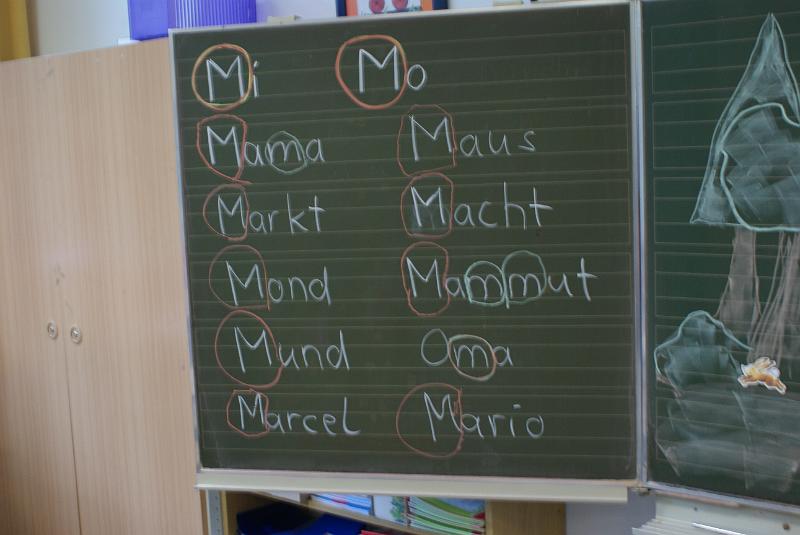 Mi Mo
Mama Maus
Markt Macht
Mond Mammut
Mund Oma
Marcel Mario